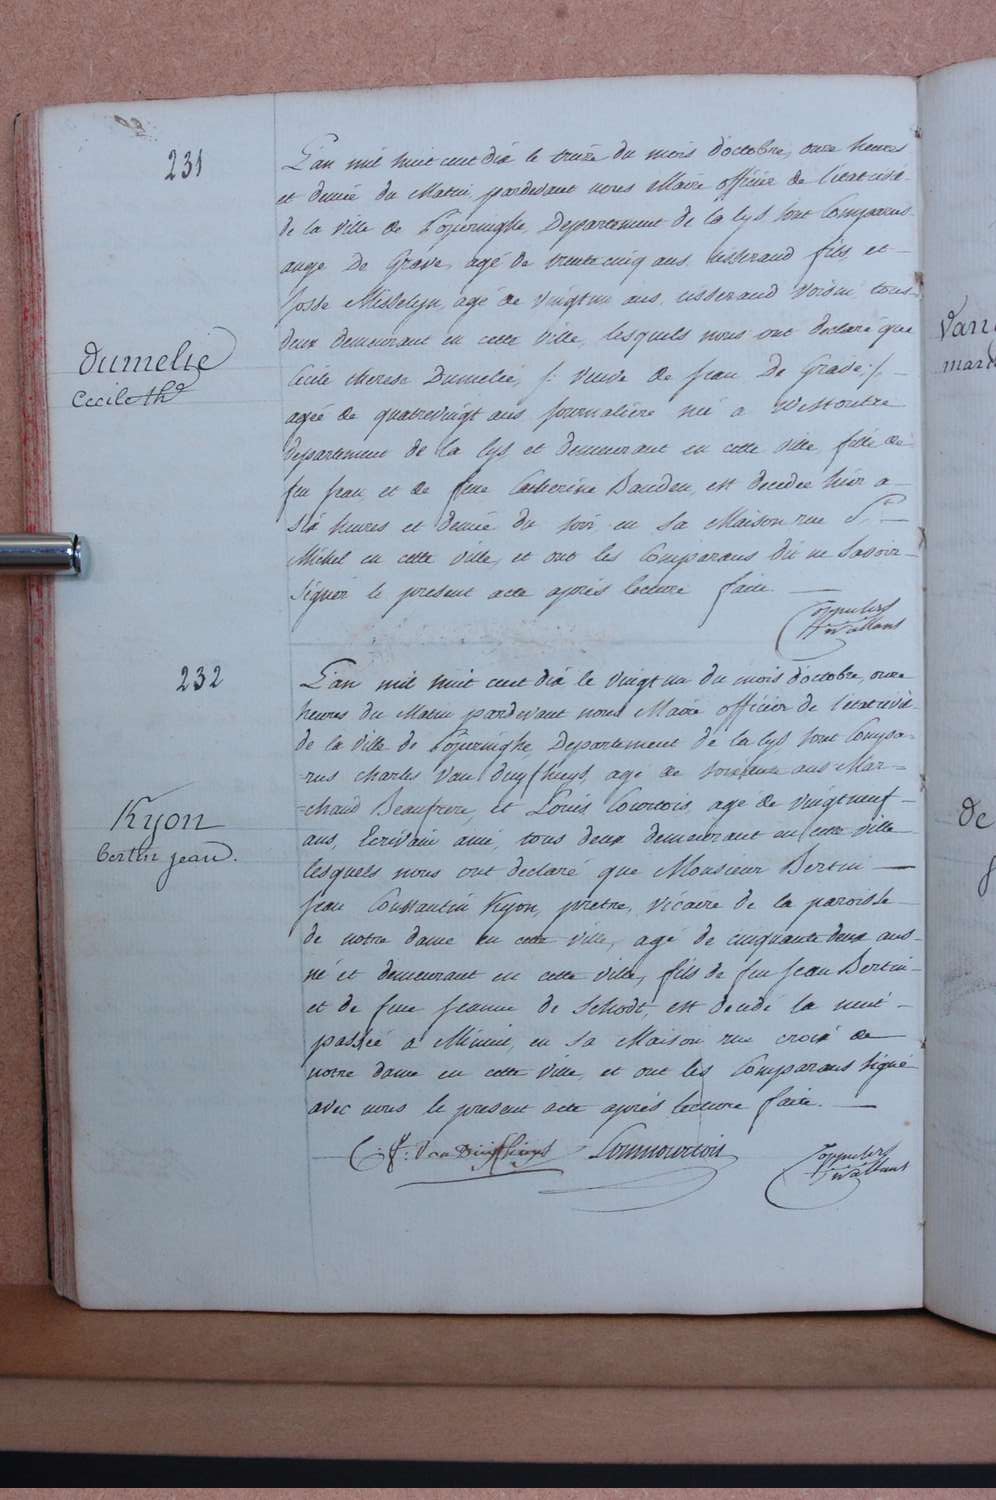 231
L'an mil huit cent dix le treize du mois d'octobre, onze heures
et demie du Matin, pardevant nous Maire officier de l'état civil
de la ville de Poperinghe, Departement de la lys sont Comparus
ange De Grave, agé de trente cinq ans tisserand fils, et
Josse Misselyn, agé de vingt un ans, tisserand Voisin, tous
deux demeurant en cette ville, lesquels nous ont declaré que
Dumelie
Cecile th.
Cecile therese Dumelie, /: veuve de jean De Grave :/
agée de quatrevingt ans journalière née a Westoutre
departement de la lys et demeurant en cette ville, fille de
feu jean, et de feue Catherine Bauden, est decedée hier a
six heures et demie du soir en sa Maison rue St.
Michel en cette ville, et ont les Comparans dit ne savoir
signer le present acte après lecture faite.
232
L'an mil huit cent dix le vingt un du mois d'octobre, onze
heures du Matin pardevant nous Maire officier de l'état civil
de la ville de Poperinghe, Departement de la lys sont Compa-
-rus charles Van duyfhuys, agé de soixante ans Mar-
-chand Beaufrere, et Louis Courtois, agé de vingt neuf
ans, Ecrivain ami, tous deux demeurant en cette ville
Kyon
bertin jean.
lesquels nous ont declaré que Monsieur Bertin
jean Constantin Kyon, prêtre, vicaire de la paroisse
de notre dame en cette ville, agé de cinquante deux ans
né et demeurant en cette ville, fils de feu jean Bertin
et de feue jeanne de Schodt, est decedé la nuit
passée a Minuit, en sa Maison rue croix de
notre dame en cette ville, et ont les Comparans signé
avec nous le present acte après lecture faite.
Van Duyfhuys
Van
de